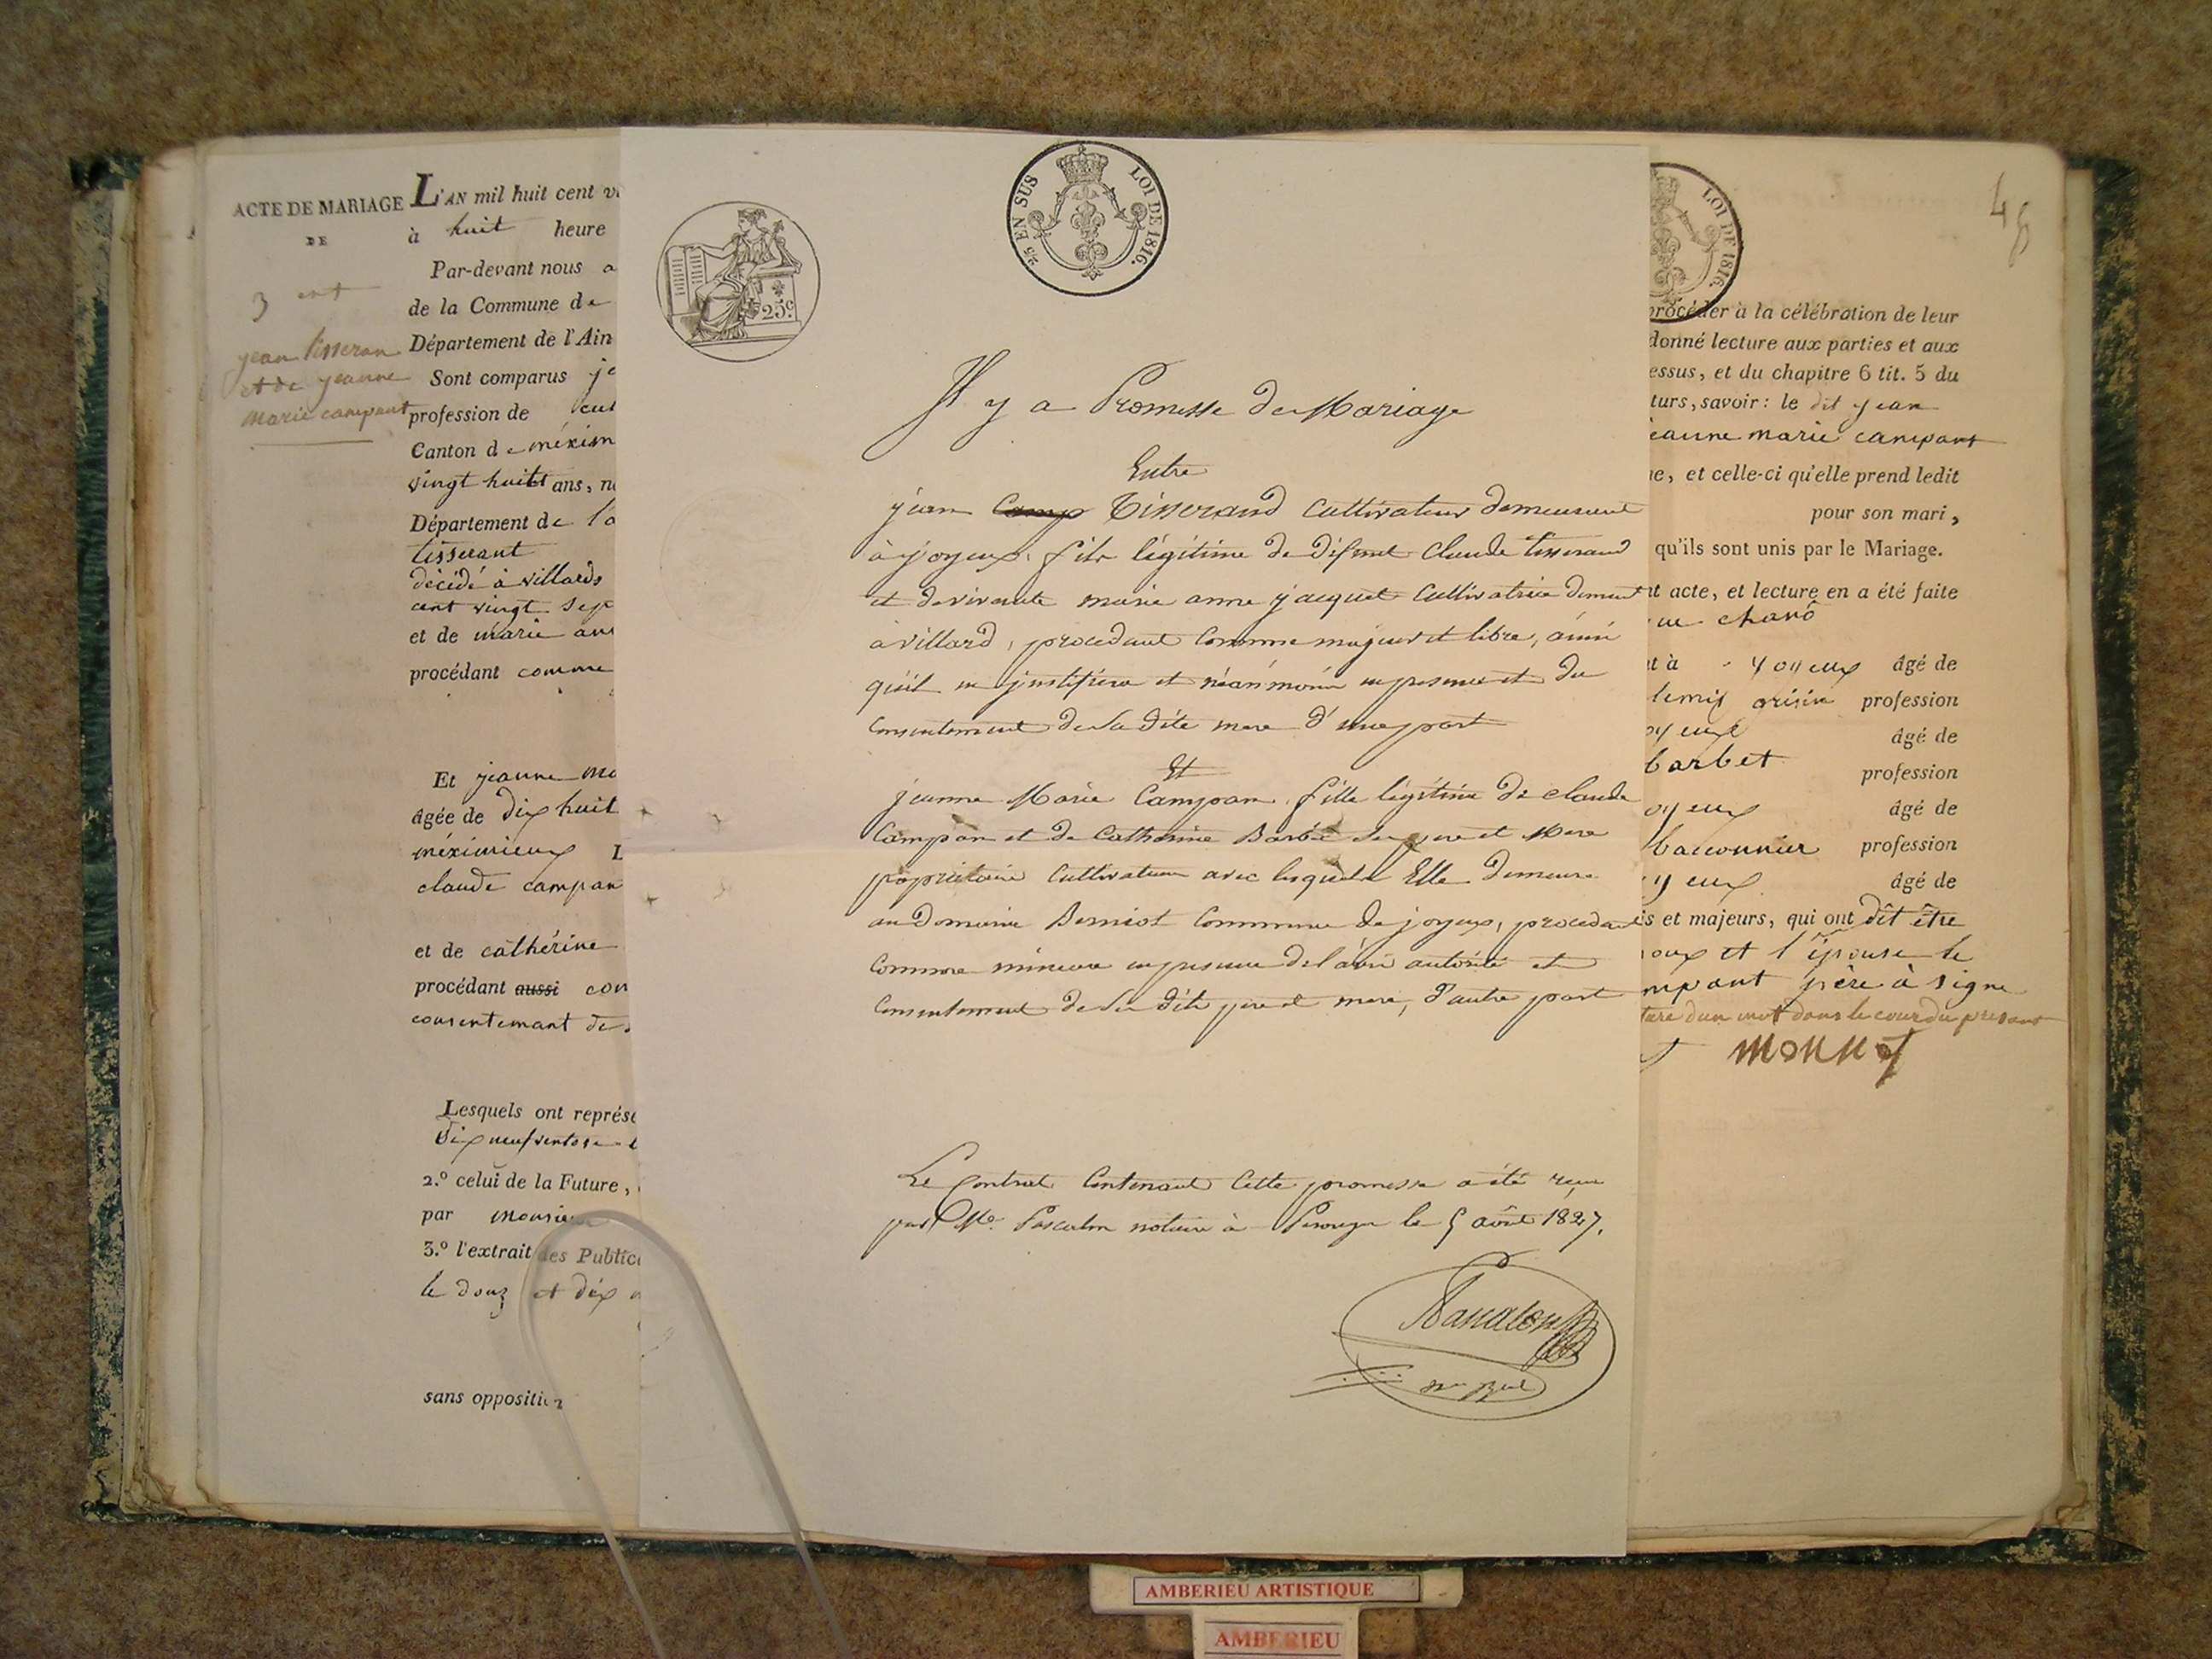 ACTE DE MARIAGE
DE
3 ent
jean tisseran
et de jeanne
marie campant
L'AN mil huit cent vi
à huit heure
Par-devant nous a
de la Commune de
Département de l'Ain
Sont comparus je
profession de cul
Canton de méxim
vingt huitt ans, na
Département de l'a
tisserant
décédé à villards
cent vingt sep
et de marie ann
procédant comme
Et jeanne ma
âgée de dix huit
méximieux L
claude campan
et de cathérine
procédant aussi com
consentemant de
Lesquels ont représe
dix neuf ventose
2.º celui de la Future,
par monsieur
3.º l'extrait des Public
le douz et dix
sans oppositi
25 EN SUS LOI DE 1816.
25c
Il y a Promesse de Mariage
Entre
jean Camp Tisserand Cultivateur demeurant
à joyeux, fils légitime de défunt Claude tisserand
et de vivante marie anne jacquet Cultivatrice demeurant
à villard, procédant Comme majeur et libre, ainsi
qu'il en justifiera et néanmoins en presence et du
Consentement de la dite mere d'une part
Et
jeanne Marie Campan, fille légitime de claude
Campan et de Catherine Barbé ses pere et Mere
propriétaires Cultivateurs avec lesquels Elle demeure
au domaine Berniot Commune de joyeux, procédant
Comme mineure en presence de l'avis autorité et
Consentement de ses dits pere et mere, d'autre part
Le Contrat Contenant Cette promesse a été reçu
par Me. Pascalon notaire à Perouges le 5 août 1827.
LOI DE 1816.
48
procéder à la célébration de leur
donné lecture aux parties et aux
essus, et du chapitre 6 tit. 5 du
turs, savoir: le dit jean
jeanne marie campant
e, et celle-ci qu'elle prend ledit
pour son mari,
qu'ils sont unis par le Mariage.
t acte, et lecture en a été faite
chanô
t à yoyeux âgé de
profession
oyeux âgé de
barbet
profession
oyeux âgé de
baconnier profession
yeux âgé de
s et majeurs, qui ont dît être
oux et l'épouse le
mpant père à signe
ture dun mot dans le cour du présant
monnet
AMBERIEU ARTISTIQUE
AMBERIEU